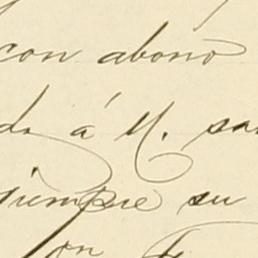 con abono
á M.
siempre su